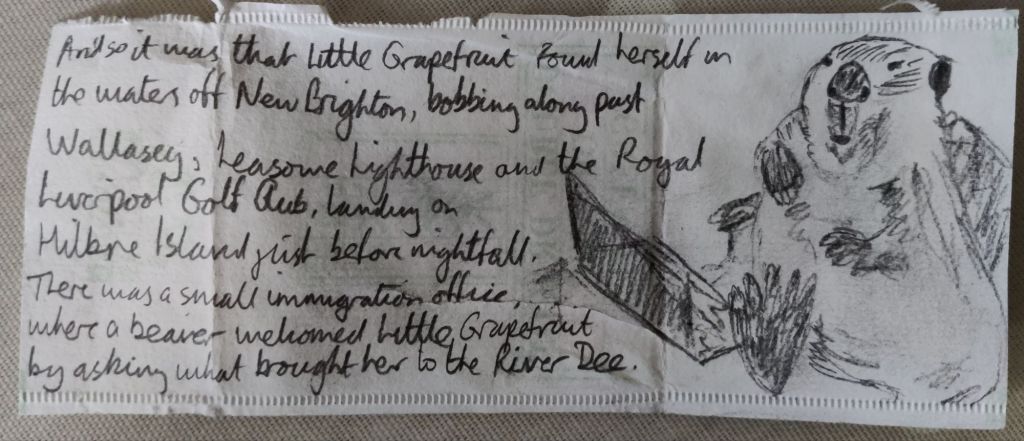 And so it was that Little Grapefruit found herself in
the waters off New Brighton, bobbing along past
Wallasey, Leasowe Lighthouse and the Royal
Liverpool Golf Club, landing on
Hilbre Island just before nightfall.
There was a small immigration office,
where a beaver welcomed Little Grapefruit
by asking what brought her to the River Dee.